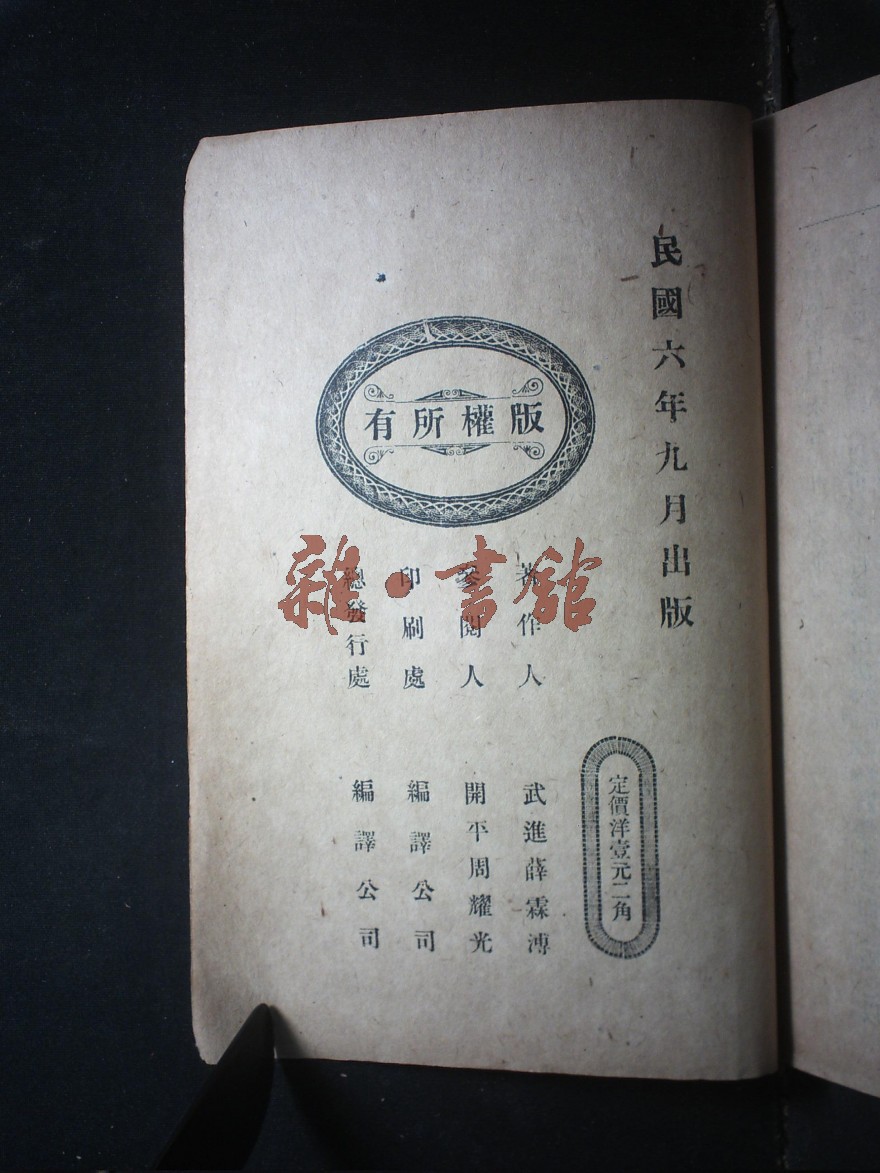 民國六年九月出版
版權所有
定價洋壹元二角
著作人 武進薛霖溥
參閱人 開平周耀光
印刷處 編譯公司
總發行處 編譯公司
雜·書館